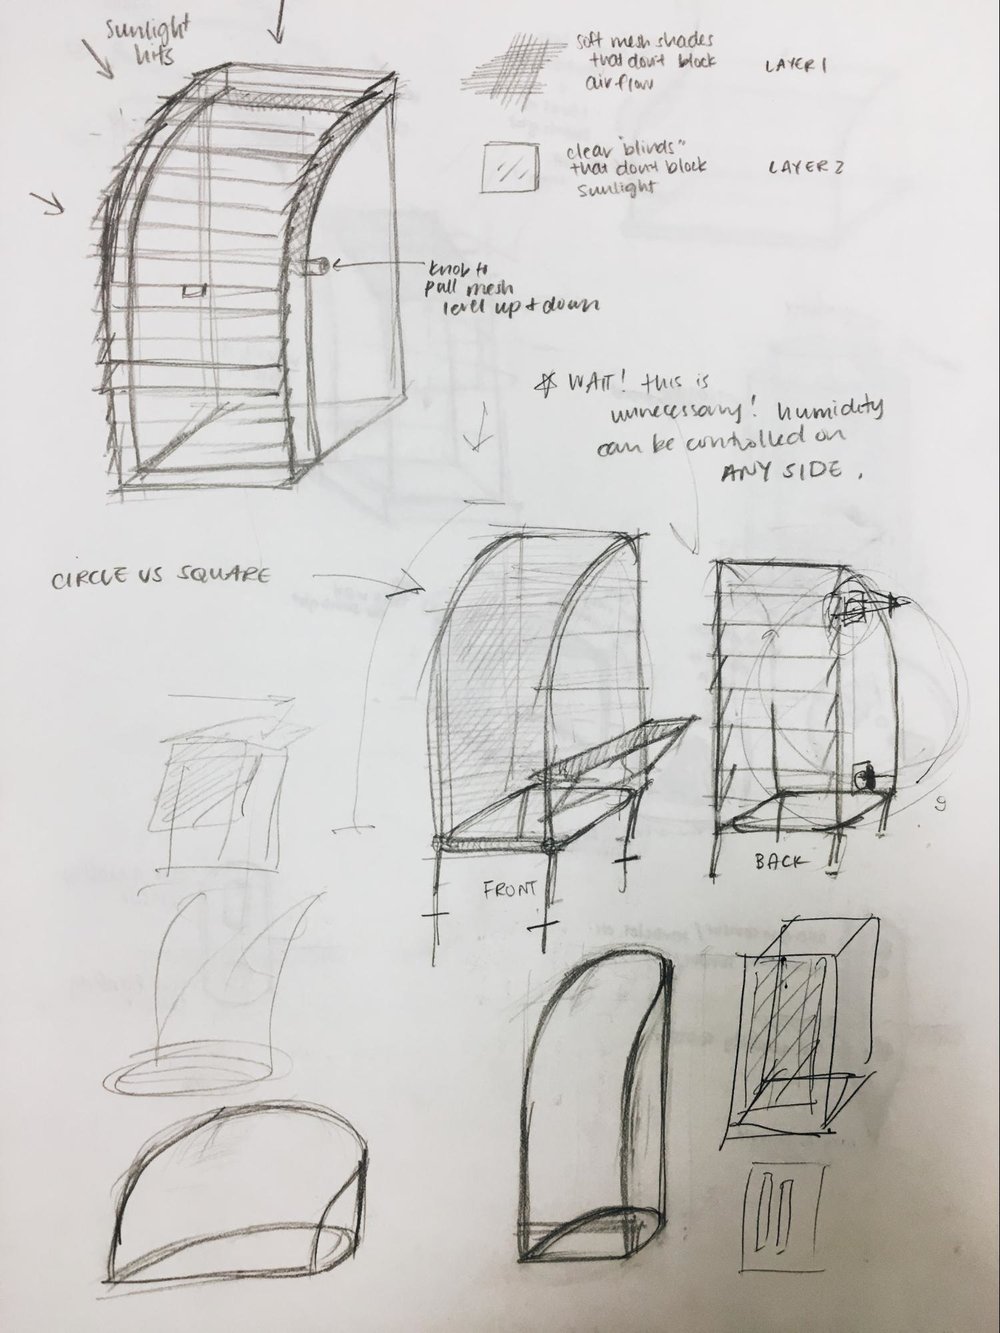 sunlight
hits
soft mesh shades
that don't block
air flow
LAYER 1
clear "blinds"
that don't block
sunlight
LAYER 2
knob to
pull mesh
level up & down
WAIT! this is
unnecessary! humidity
can be controlled on
ANY SIDE.
CIRCLE VS SQUARE
FRONT
BACK